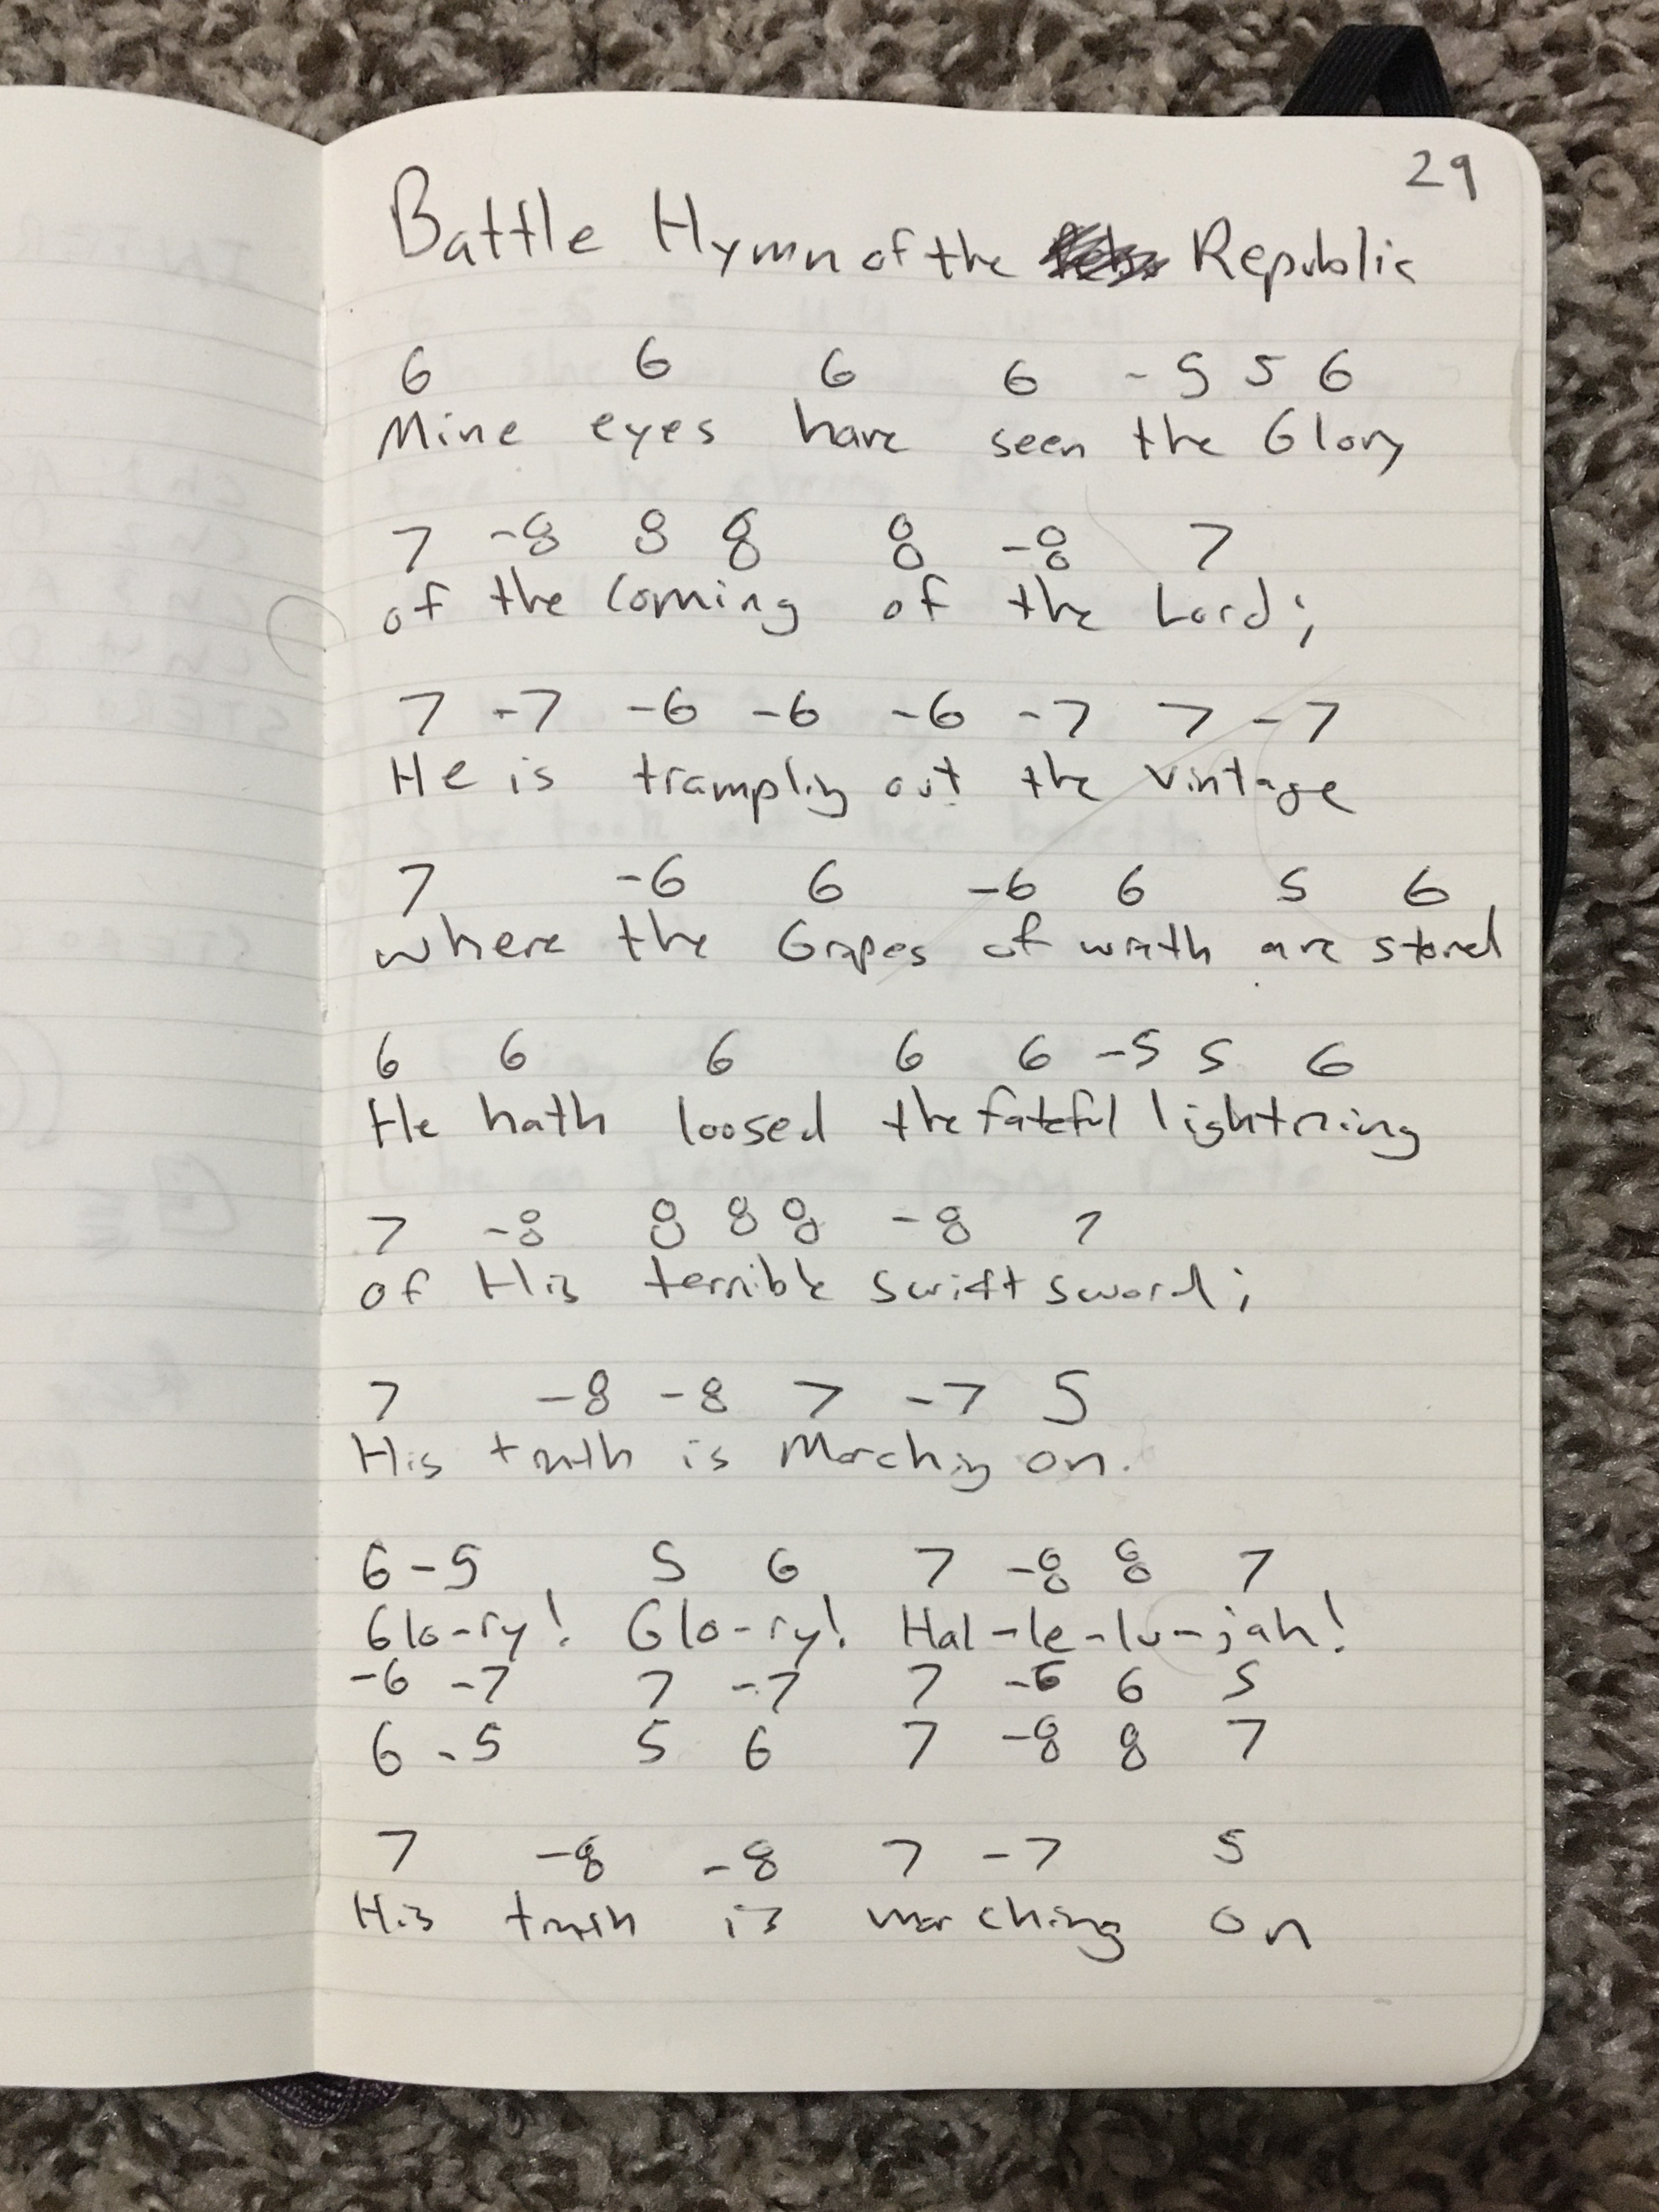 29
Battle Hymn of the Republic
6 6 6 6 -5 5 6
Mine eyes have seen the Glory
7 -8 8 8 8 -8 7
of the Coming of the Lord;
7 -7 -6 -6 -6 -7 7 -7
He is trampling out the vintage
7 -6 6 -6 6 5 6
where the Grapes of wrath are stored
6 6 6 6 6 -5 5 6
He hath loosed the fateful lightning
7 -8 8 8 8 -8 7
of His terrible swift sword;
7 -8 -8 7 -7 5
His truth is Marching on.
6 -5 5 6 7 -8 8 7
Glo-ry! Glo-ry! Hal-le-lu-jah!
-6 -7 7 -7 7 -6 6 5
6 -5 5 6 7 -8 8 7
7 -8 -8 7 -7 5
His truth is marching on